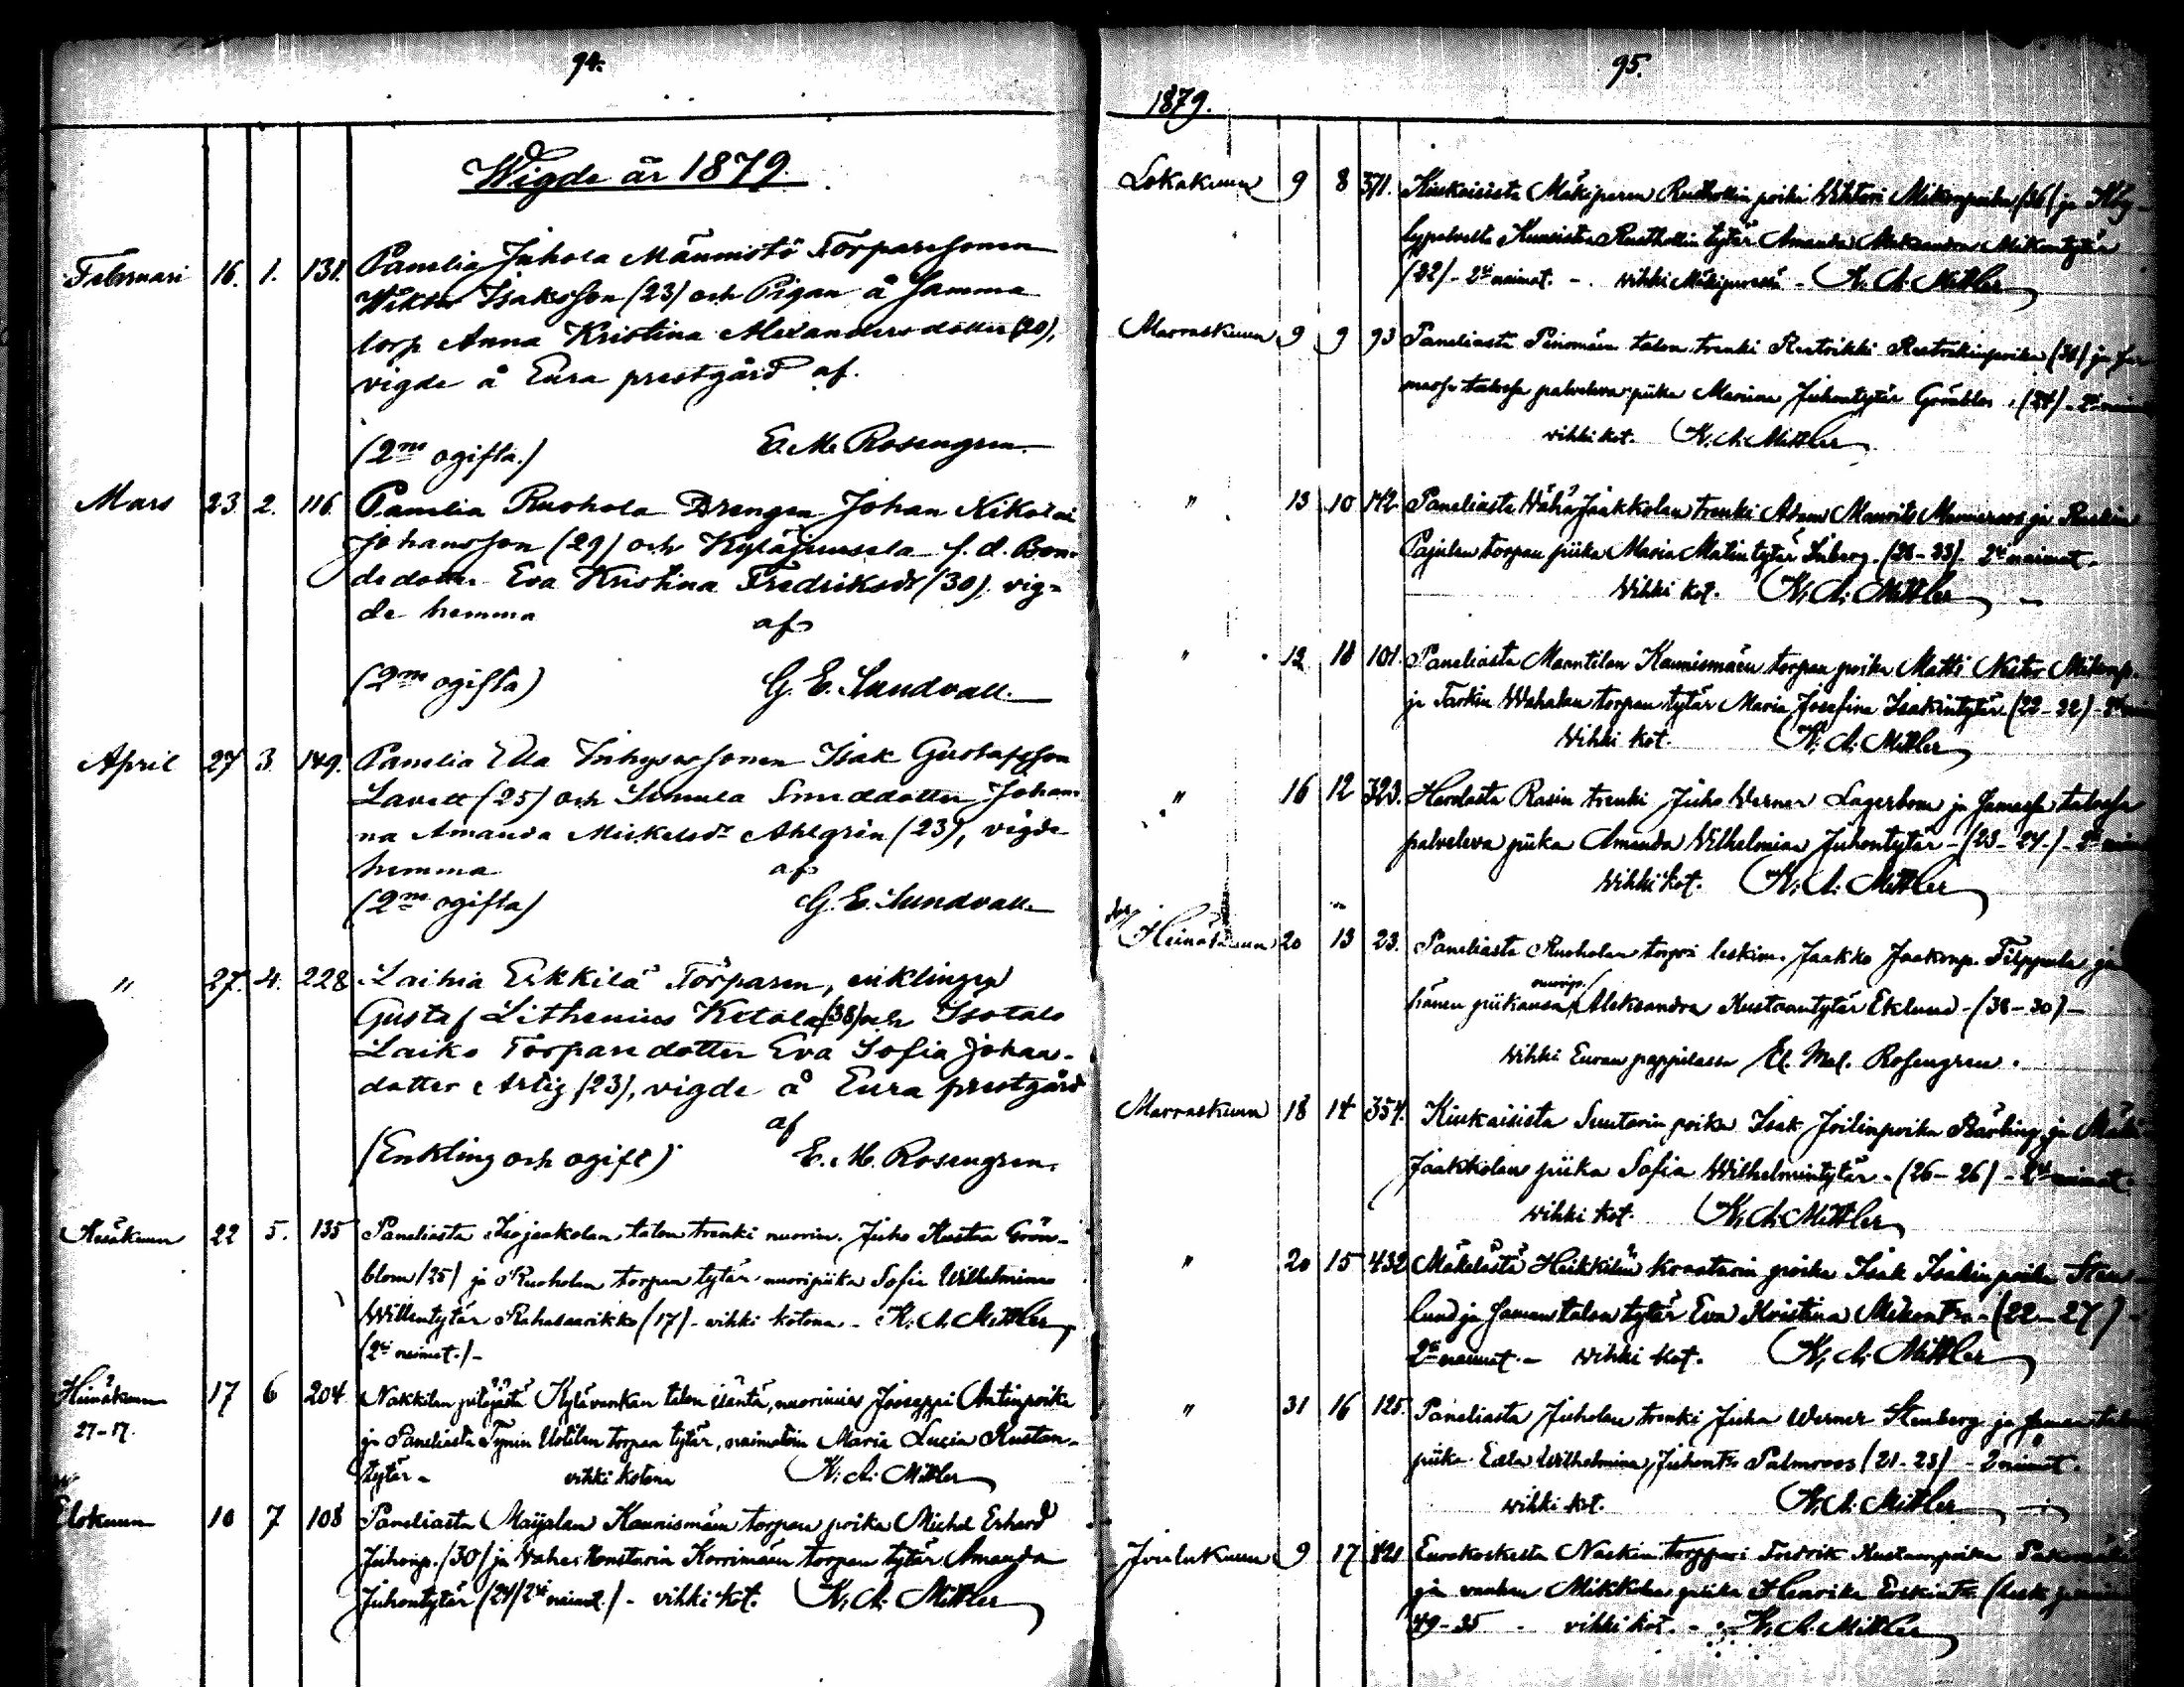 94.
Wigde år 1879.
Februari 16. 1. 131. Panelia Juhola Männistö Torparesonen
Wiktor Isaksson (23) och Pigan å samma
torp Anna Kristina Alexandersdotter (20),
vigde å Eura prestgård af.
(2ne ogifta.) E. M. Rosengren
Mars 23. 2. 116. Panelia Ruohola Drengen Johan Nikolai
Johansson (29) och Kyläjuusela f. d. Bon-
dedotter Eva Kristina Fredriksdr (30), vig-
de hemma af
(2ne ogifta) G. E. Sundvall.
April 27 3. 149. Panelia Ella Inhysessonen Isak Gustafsson
Lavett (25) och Smeddotter Johan-
na Amanda Mickelsdr Ahlgrén (23), vigde
hemma af
(2ne ogifta) G. E. Sundvall.
" 27. 4. 228 Laihia Erkkilä Torparen, enklingen
Gustaf Lithenius Ketola (38) och Isotalo
Laiko Torparedotter Eva Sofia Johan-
dotter Artig (23), vigde å Eura prestgård
af
(Enkling och ogift) E. M. Rosengren.
Kesäkuun 22 5. 135 Paneliasta Isojaakolan talon trenki nuorim. Juho Kustaa Grön-
blom (25) ja Ruoholan torpan tytär nuoripiika Sofia Wilhelmina
Willentytär Rahasaarikko (17) - vihki kotona. - K. A. Mittler
(2si naimat.) -
Heinäkuun 17 6 204 Nakkilan pitäjästä Kylävankan talon isäntä, nuorimies Joseppi Antinpoika
27-17. ja Paneliasta Tynin Uotilan torpan tytär, naimatoin Maria Lucia Kustan-
tytär - vihki kotona K. A. Mittler
Elokuun 10 7 108 Paneliasta Maijalan Kaunismäen torpan poika Michel Erhard
Juhonp. (30) ja Korrimäen torpan tytär Amanda
Juhontytär (24/2si naimat.) - vihki kot. K. A. Mittler
95.
1879.
Lokakuun 9 8 371. Kiukaisista Mäkiperen Rusthollin poika Wihtori Mikonpoika (36) ja Köy-
lypolvelta Rusthollin tytär Amanda Aleksandra Mikontytär
(22) - 2si naimat. - vihki - K. A. Mittler
Marraskuun 9 9 93 Paneliasta talon trenki Rietrikki Rietrikinpoika ja sa-
massa talossa palveleva piika Mariana Juhontytär Grönblom (24) -
vihki kot. K. A. Mittler
" 13 10 142 Paneliasta Wähä Jaakkolan trenki Adam Maurits ja
Pajulan torpan piika Maria Matintytär Inberg. (28-23) 2si naimat.
Vihki kot. K. A. Mittler
" 12 18 101. Paneliasta Manntilan Kaunismäen torpan poika Matti Nestor Mikonp.
ja torpan tytär Maria Josefina Isakintytär (22-22) -
Vihki kot. K. A. Mittler
" 16 12 323. Rasin trenki Juho Verner Lagerbom ja samassa talossa
palveleva piika Amanda Wilhelmina Juhontytär - (23-24-) -
Vihki kot. K. A. Mittler
Heinäkuun 20 13 23. Paneliasta Ruoholan torpri leskim. Jaakko Jaakonp. Filppula ja
hänen piikansa, Aleksandra Kustaantytär Eklund - (38-30) -
Vihki Euran pappilassa El. Mal. Rosengren.
Marraskuun 18 14 354. Kiukaisista Suutarin poika Isak Joilinpoika Bärling ja
Jaakkolan piika Sofia Wilhelmintytär - (26-26) -
vihki kot. K. A. Mittler
" 20 15 432 Mäkelästä Heikkilän kraatarin poika Isak Isakinpoika Sten-
lund ja saman talon tytär Eva Kristina - (22-27) -
2si naimat. - vihki kot. K. A. Mittler
" 31 16 125. Paneliasta Juholan trenki Juha Werner Stenberg ja saman talon
piika Edla Wilhelmina Juhontr Palmroos (21-23) - 2 naimat.
vihki kot. K. A. Mittler
Joulukuun 9 17 421 Eurakoskelta Naskin torppari Fredrik Kustaanpoika
ja vanhan Mikkolan piika Henrika
49-35 - vihki kot. - K. A. Mittler